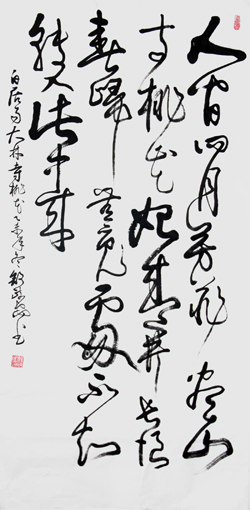 人间四月芳菲尽山
寺桃花始盛开长恨
春歸无觅处不知
转入此中来
白居易大林寺桃花